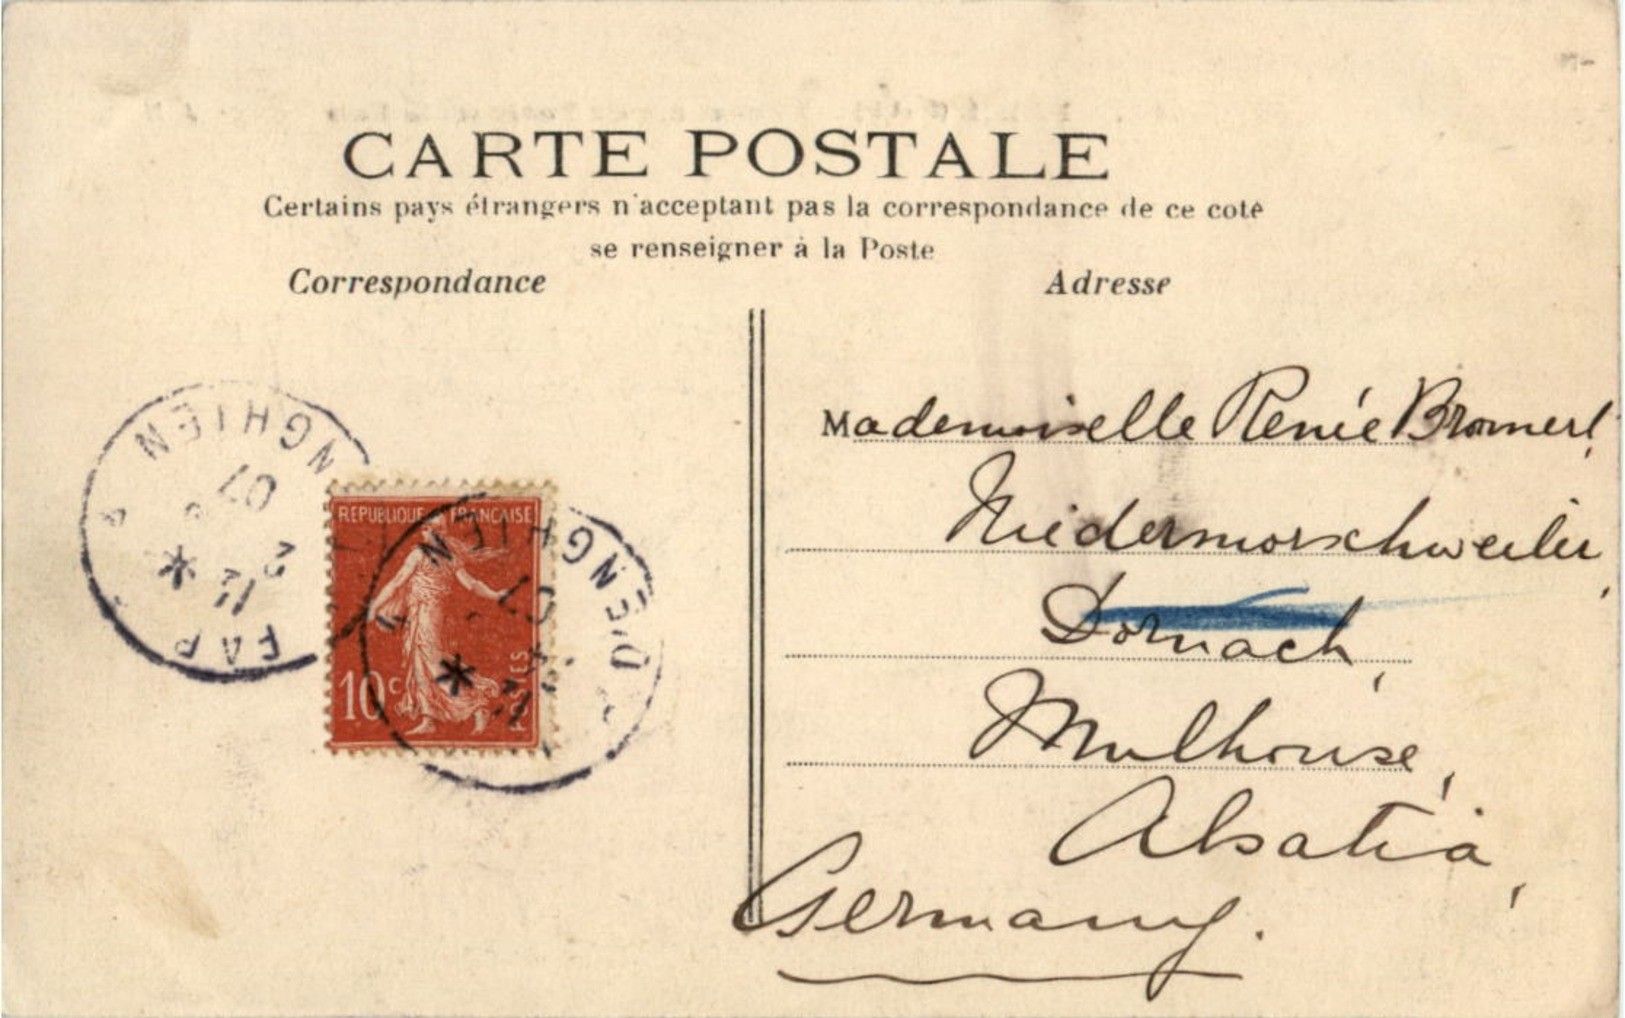 CARTE POSTALE
Certains pays étrangers n'acceptant pas la correspondance de ce coté
se renseigner à la Poste
Correspondance
Adresse
Mademoiselle Renée Bromert,
Niedermorschweiler,
Dornach,
Mulhouse,
Alsatia,
Germany.
REPUBLIQUE FRANÇAISE
10c
POSTES
D'ENGHIEN
07
NGHIEN
07